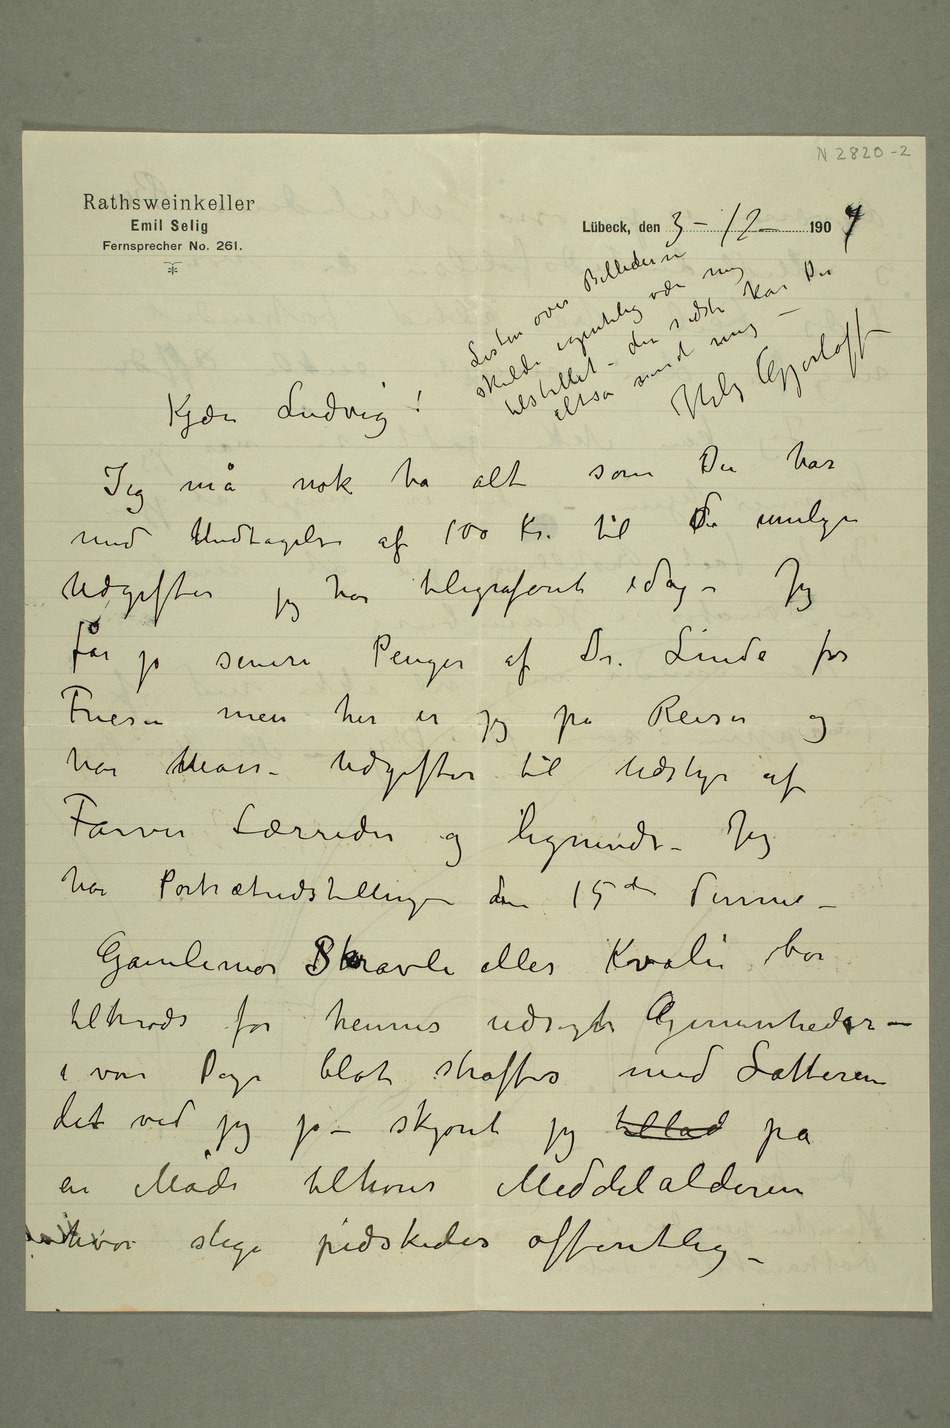 N 2820-2
Rathsweinkeller
Emil Selig
Fernsprecher No. 261.
Lübeck, den 3 – 12 – 1904
Listen over Billederne
skulde egentlig være mig
tilstillet – den sidste kan Du
altså sende mig –
Hils Gjerløff –
Kjære Ludvig!
Jeg må nok ha alt som Du har
med Undtagelse af 100 Kr. til de nulige
Udgifter jeg har telegraferet idag – Jeg
får jo senere Penger af Dr. Linde for
Friesen men her er jeg på Reiser og
har Mass. Udgifter til Udstyr af
Farver Lærreder og lignende – Jeg
har Portrætudstillingen den 15de dennes –
Gamlemor Skravle eller Kvalie bør
tiltrods for hennes udsøgte Gemenheder –
i vore Dage blot straffes med Latteren
det ved jeg jo – skjønt jeg tillad på
en Måde tilhører Middelalderen
hvor slige pidskedes offentlig –